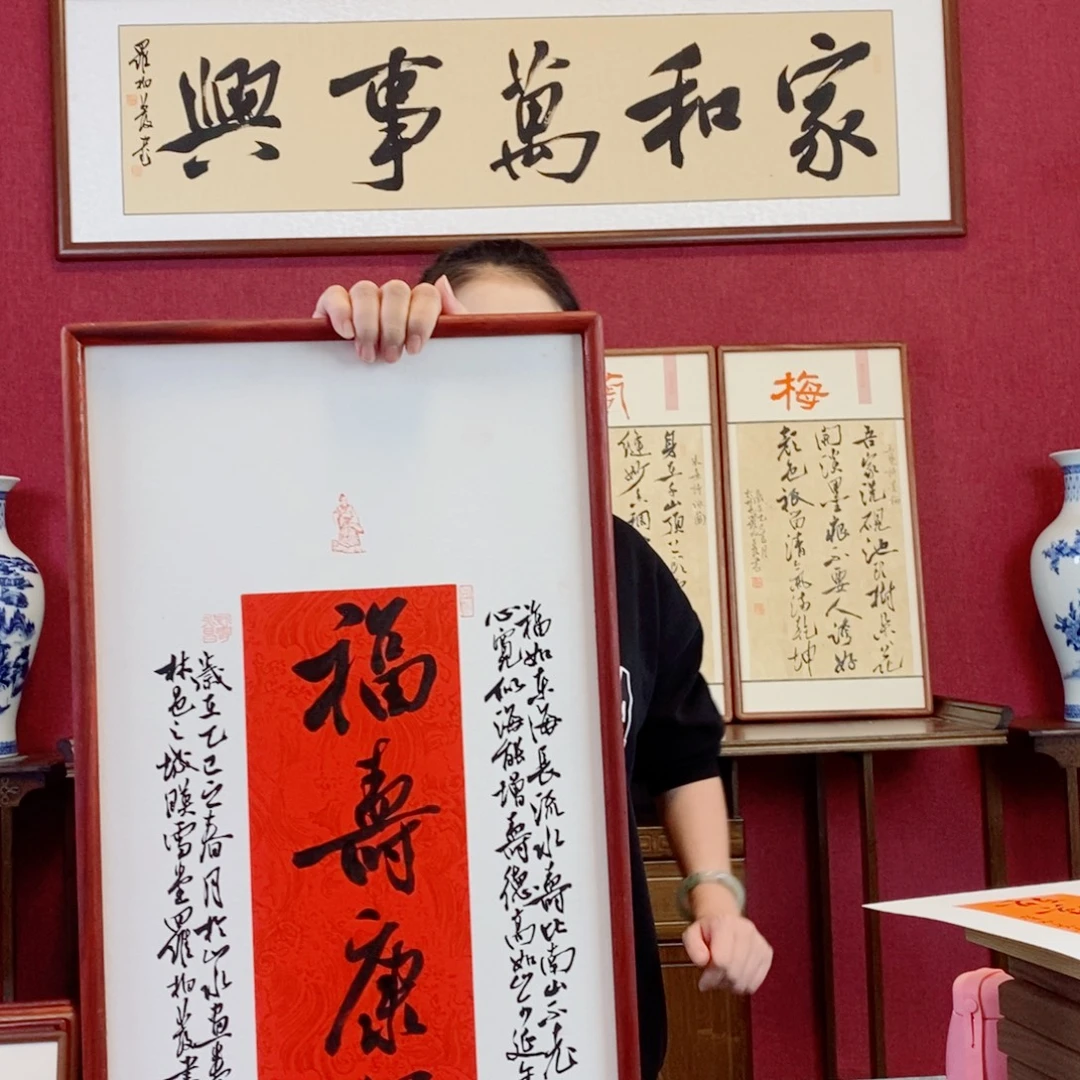 家和萬事興
福如东海長流水壽比南山不老
心寬似海能增壽德高如山可延年
福壽康
歲在乙巳之春月於山水畫
林邑之城暎雪堂羅柏
身在千山頂上
缝妙香稠
梅
吾家洗硯池头樹朵朵花
開淡墨痕不要人誇好
顏色祇留清氣滿乾坤